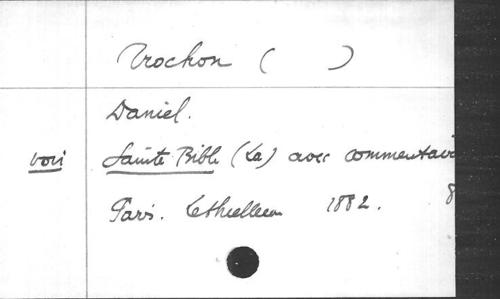 Trochon ( )
Daniel.
voir Sainte Bible (La) avec commentai
Paris. Lethielleux 1882. 8